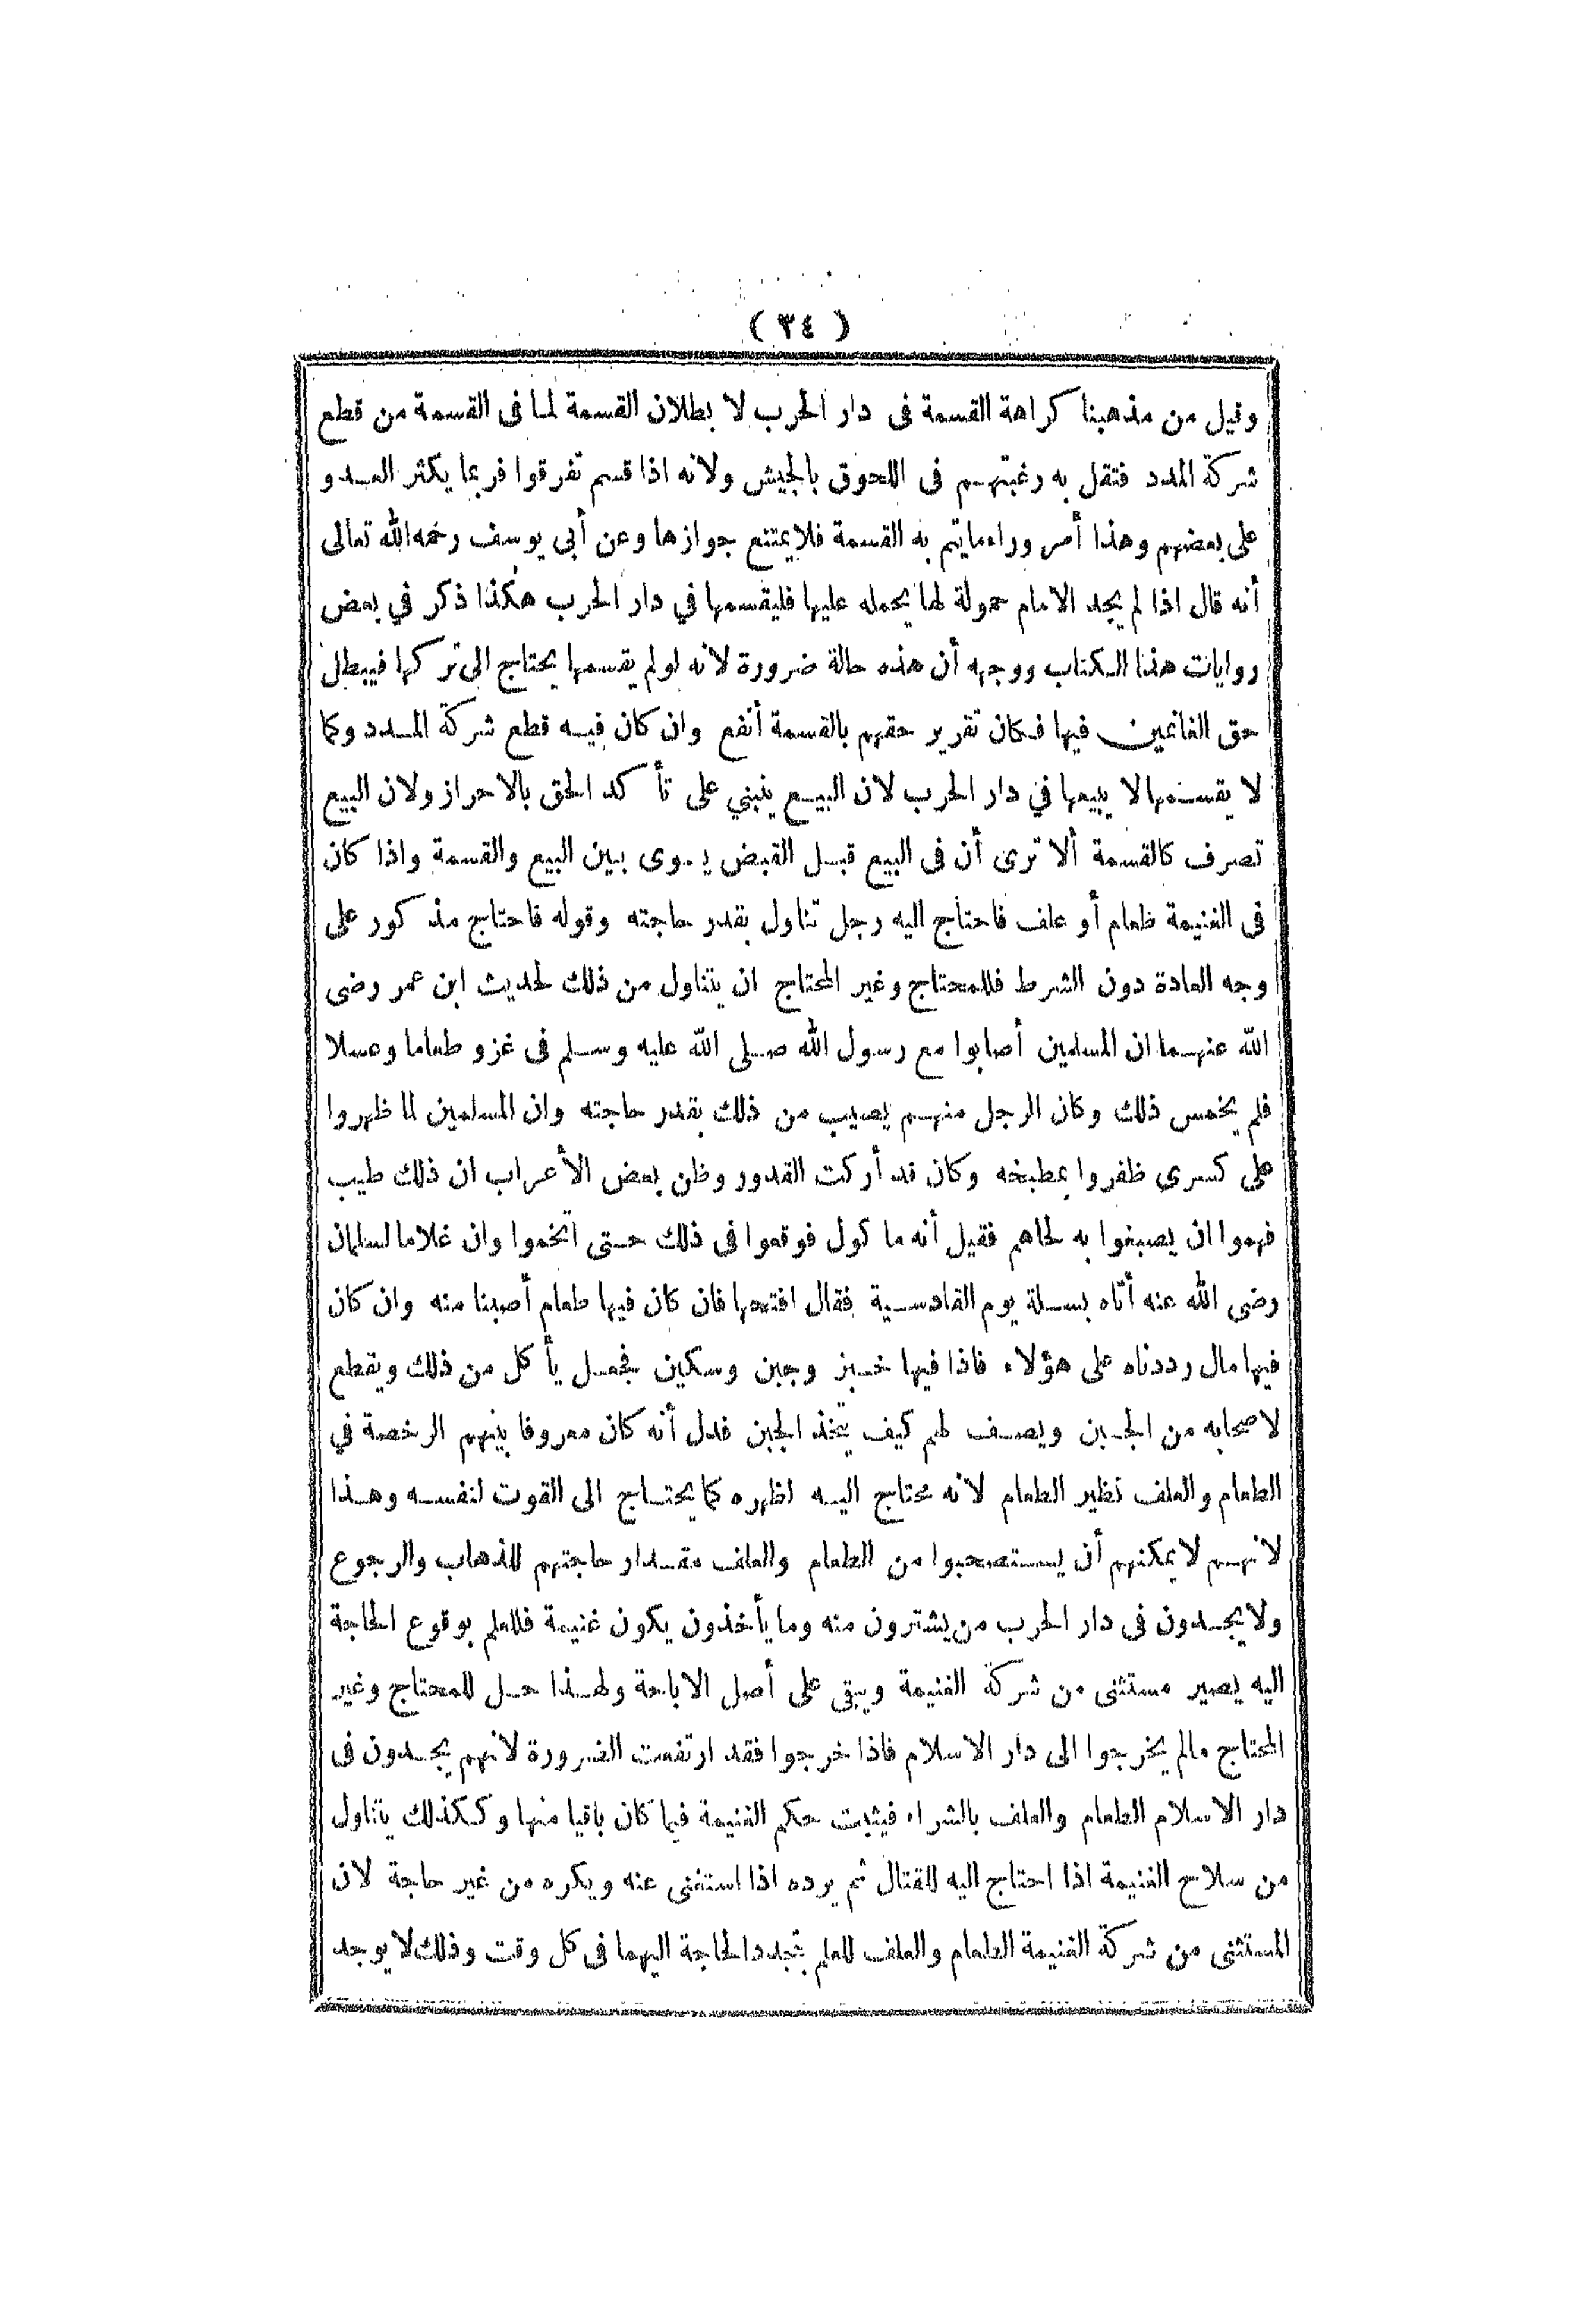 ( ٣٤ )
وقيل من مذهبنا كراهة القسمة فى دار الحرب لا بطلان القسمة لما فى القسمة من قطع
شركة المدد فتقل به رغبتهم فى اللحوق بالجيش ولانه اذا قسم تفرقوا فربما يكثر العدو
على بعضهم وهذا أمر وراء مايتم به القسمة فلا يمتنع جوازها وعن أبي يوسف رحمه الله تعالى
أنه قال اذا لم يجد الامام حمولة لها يحمله عليها فليقسمها في دار الحرب هكذا ذكر في بعض
روايات هذا الكتاب ووجهه أن هذه حالة ضرورة لانه لو لم يقسمها يحتاج الى تركها فيبطل
حق الغانمين فيها فكان تقرير حقهم بالقسمة أنفع وان كان فيه قطع شركة المدد وكما
لا يقسمها لا يبيعها في دار الحرب لان البيع ينبني على تأكد الحق بالاحراز ولان البيع
تصرف كالقسمة ألا ترى أن فى البيع قبل القبض يسوى بين البيع والقسمة واذا كان
فى الغنيمة طعام أو علف فاحتاج اليه رجل تناول بقدر حاجته وقوله فاحتاج مذكور على
وجه العادة دون الشرط فللمحتاج وغير المحتاج ان يتناول من ذلك لحديث ابن عمر رضى
الله عنهما ان المسلمين أصابوا مع رسول الله صلى الله عليه وسلم فى غزو طعاما وعسلا
فلم يخمس ذلك وكان الرجل منهم يصيب من ذلك بقدر حاجته وان المسلمين لما ظهروا
على كسرى ظفروا بمطبخه وكان قد أركت القدور وظن بعض الأعراب ان ذلك طيب
فهموا ان يصبغوا به لحاهم فقيل أنه ماكول فوقعوا فى ذلك حتى اتخموا وان غلاما لسلمان
رضى الله عنه أتاه بسلة يوم القادسية فقال افتحها فان كان فيها طعام أصبنا منه وان كان
فيها مال رددناه على هؤلاء فاذا فيها خبز وجبن وسكين فجعل يأكل من ذلك ويقطع
لاصحابه من الجبن ويصف لهم كيف يتخذ الجبن فدل أنه كان معروفا بينهم الرخصة في
الطعام والعلف نظير الطعام لانه محتاج اليه لظهره كما يحتاج الى القوت لنفسه وهذا
لانهم لا يمكنهم أن يستصحبوا من الطعام والعلف مقدار حاجتهم للذهاب والرجوع
ولا يجدون فى دار الحرب من يشترون منه وما يأخذون يكون غنيمة فللعلم بوقوع الحاجة
اليه يصير مستثنى من شركة الغنيمة ويبقى على أصل الاباحة ولهذا حل للمحتاج وغير
المحتاج مالم يخرجوا الى دار الاسلام فاذا خرجوا فقد ارتفعت الضرورة لانهم يجدون فى
دار الاسلام الطعام والعلف بالشراء فيثبت حكم الغنيمة فيما كان باقيا منها وكذلك يتناول
من سلاح الغنيمة اذا احتاج اليه للقتال ثم يرده اذا استغنى عنه ويكره من غير حاجة لان
المستثنى من شركة الغنيمة الطعام والعلف للعلم بتجدد الحاجة اليهما فى كل وقت وذلك لا يوجد